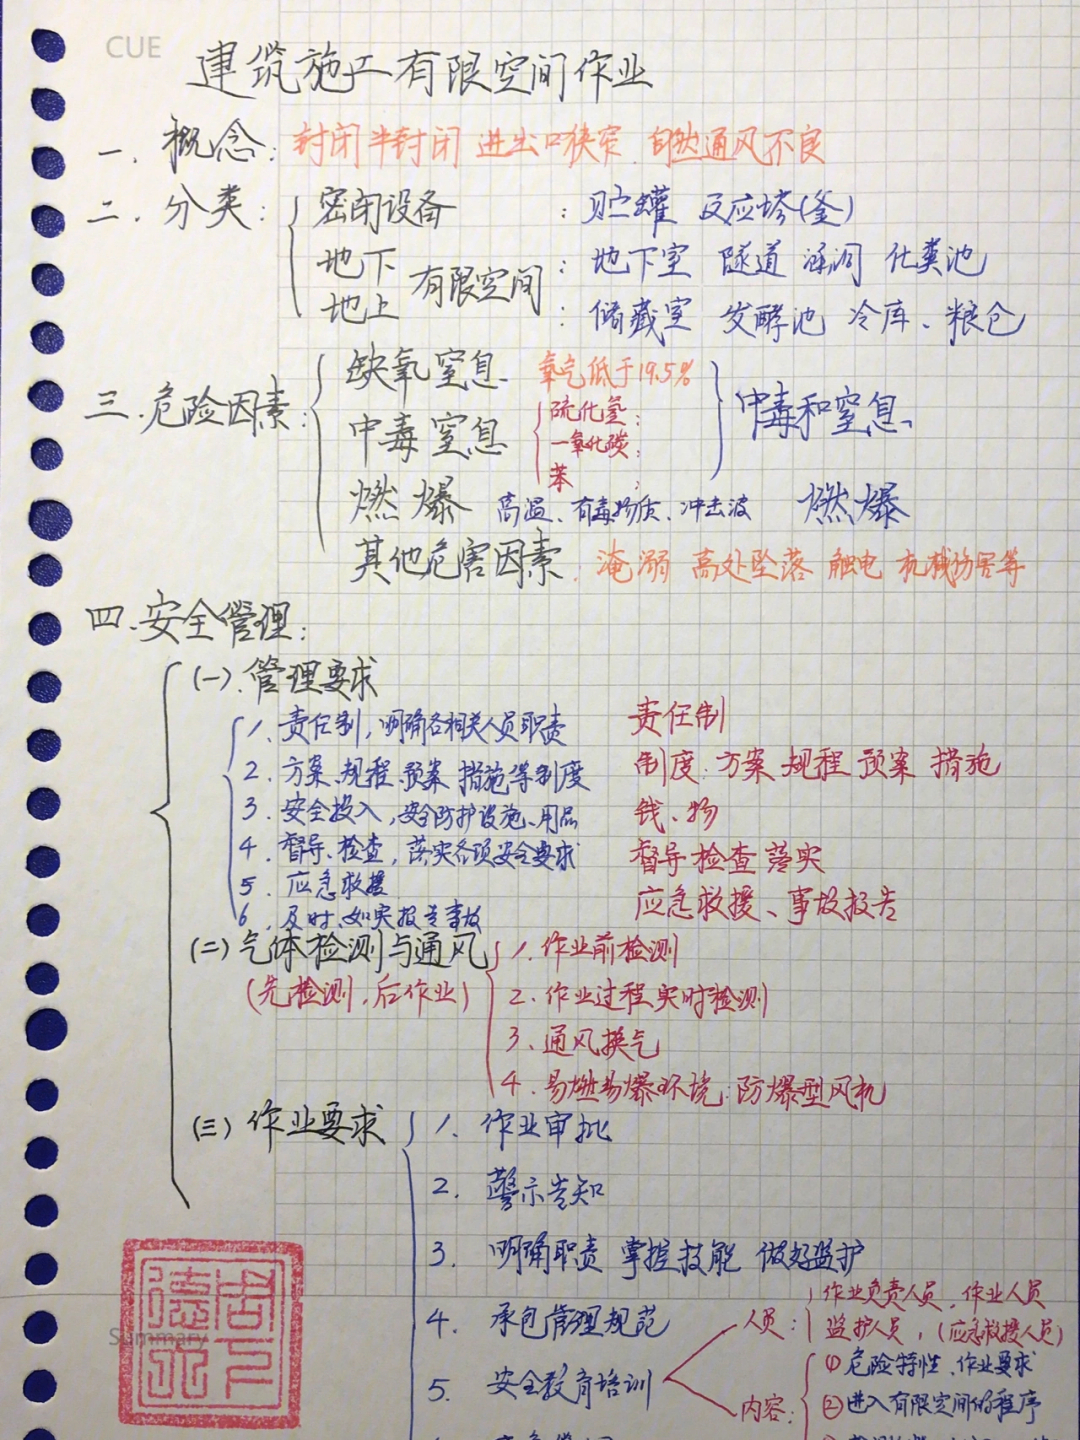 CUE
建筑施工有限空间作业
一. 概念: 封闭半封闭 进出口狭窄 自然通风不良
二. 分类: 密闭设备 : 贮罐 反应塔(釜)
地下 有限空间 : 地下室 隧道 涵洞 化粪池
地上 : 储藏室 发酵池 冷库、粮仓
三. 危险因素: 缺氧窒息 氧气低于19.5%
中毒窒息 硫化氢; 中毒和窒息
一氧化碳;
苯 ;
燃爆 高温、有毒物质、冲击波 燃爆
其他危害因素: 淹溺 高处坠落 触电 机械伤害等
四. 安全管理:
(一). 管理要求
1. 责任制, 明确各相关人员职责 责任制
2. 方案、规程、预案 措施等制度 制度: 方案 规程 预案 措施
3. 安全投入, 安全防护设施、用品 钱、物
4. 督导、检查, 落实各项安全要求 督导 检查 落实
5. 应急救援 应急救援、事故报告
6. 及时、如实报告事故
(二) 气体检测与通风 1. 作业前检测
(先检测, 后作业) 2. 作业过程实时检测
3. 通风换气
4. 易燃易爆环境: 防爆型风机
(三) 作业要求 1. 作业审批
2. 警示告知
3. 明确职责 掌握技能 做好监护
4. 承包管理规范 人员: 作业负责人员, 作业人员
监护人员, (应急救援人员)
5. 安全教育培训 ① 危险特性、作业要求
内容: ② 进入有限空间的程序
Summary